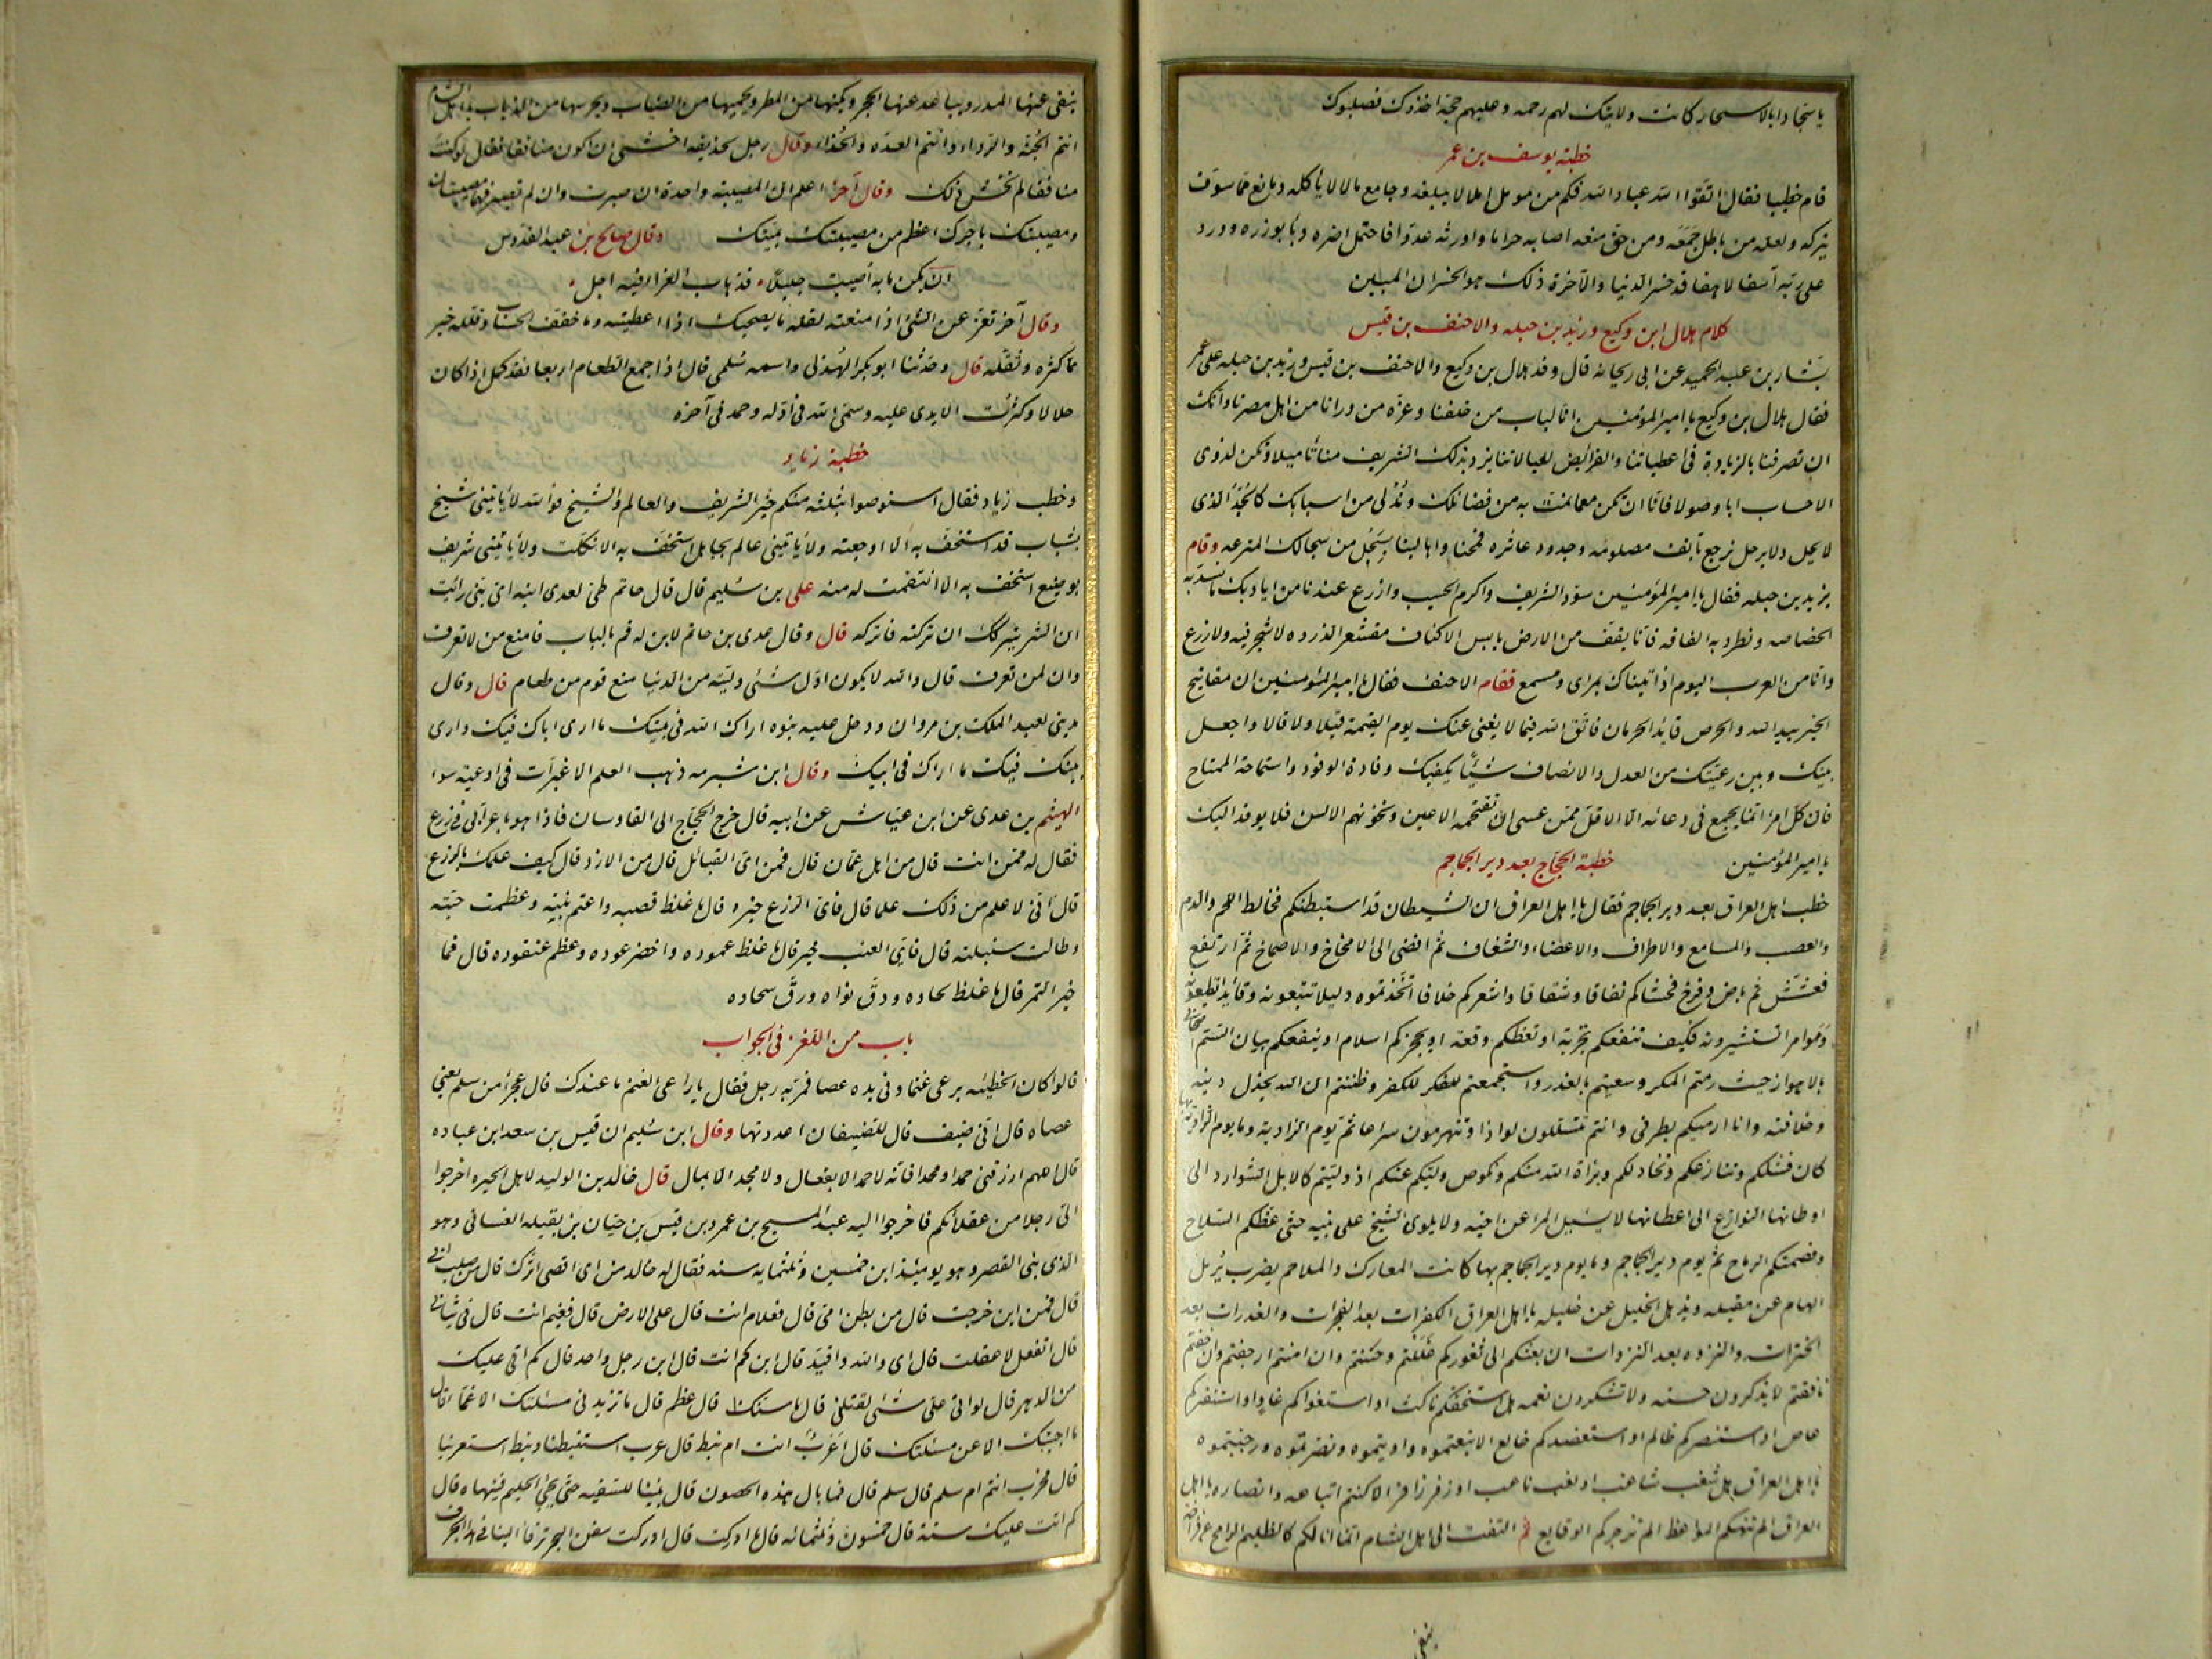 يا سجاد ابالاسحار كانت ولايتك لهم رحمه وعليهم حجة اخذوك فصلبوك
خطبة يوسف بن عمر
قام خطيبا فقال اتقوا الله عباد الله فكم من مومل املا لا يبلغه وجامع مالا لا يأكله ومانع عما سوف
يتركه ولعله من باطل جمعه ومن حق منعه اصابه حراما واورثه عدوا فاحتمل اصره وباء بوزره وورد
على ربه آسفا لاهفا قد خسر الدنيا والآخرة ذلك هو الخسران المبين
كلام هلال ابن وكيع وزيد بن جبله والاحنف بن قيس
بشار بن عبد الحميد عن ابى ريحانه قال وفد هلال بن وكيع والاحنف بن قيس وزيد بن جبله على عمر
فقال هلال بن وكيع يا امير المؤمنين انا لباب من خلفنا وغرة من ورانا من اهل مصرنا وانك
ان تصرفنا بالزيادة فى اعطياتنا والفرائض لعيالاتنا يزد بذلك الشريف منا تاميلا وتكن لذوى
الاحساب ابا وصولا فانا ان نكن مع ما نمت به من فضائلك وندلى من اسبابك كالجد الذى
لا يحل ولا يرحل نرجع بآنف مصلومه وجدود عاثره فمحنا واهالينا بسجل من سجالك المترعه وقام
يزيد بن جبله فقال يا امير المؤمنين سود الشريف واكرم الحسيب وازرع عندنا من اياديك ما تسد به
الخصاصه ونطرد به الفاقه فانا بقف من الارض يابس الاكناف مقشعر الذروه لا شجر فيه ولا زرع
وانا من العرب اليوم اذ اتيناك بمراى ومسمع فقام الاحنف فقال يا امير المؤمنين ان مفاتيح
الخير بيد الله والحرص قايد الحرمان فاتق الله فيما لا يغنى عنك يوم القيمة قيلا ولا قالا واجعل
بينك وبين رعيتك من العدل والانصاف شيئا يكفيك وفادة الوفود واستماحة الممتاح
فان كل امرا انما يجمع فى وعائه الا الاقل ممن عسى ان تقتحمه الاعين وتخونهم الالسن فلا يوفد اليك
يا امير المؤمنين خطبة الحجاج بعد دير الجماجم
خطب اهل العراق بعد دير الجماجم فقال يا اهل العراق ان الشيطان قد استبطنكم فخالط اللحم والدم
والعصب والمسامع والاطراف والاعضاء والشغاف ثم افضى الى الامخاخ والاصماخ ثم ارتفع
فعشش ثم باض وفرخ فحشاكم نفاقا وشقاقا واشعركم خلافا اتخذتموه دليلا تتبعونه وقايدا تطيعونه
ومؤامرا تستشيرونه فكيف تنفعكم تجربة او تعظكم وقعة او يحجزكم اسلام او ينفعكم بيان الستم اصحابى
بالاهواز حيث رمتم المكر وسعيتم بالغدر واستجمعتم للكفر وظننتم ان الله يخذل دينه
وخلافته وانا ارميكم بطرفى وانتم تتسللون لواذا وتنهزمون سراعا ثم يوم الزاوية وما يوم الزاوية بها
كان فشلكم وتنازعكم وتخاذلكم وبراة الله منكم ونكوص وليكم عنكم اذ وليتم كالابل الشوارد الى
اوطانها النوازع الى اعطانها لا يسئل المرا عن اخيه ولا يلوى الشيخ على بنيه حتى عظكم السلاح
وقصمتكم الرماح ثم يوم دير الجماجم وما يوم دير الجماجم بها كانت المعارك والملاحم بضرب يزيل
الهام عن مقيله ويذهل الخليل عن خليله يا اهل العراق الكفرات بعد الفجرات والغدرات بعد
الخترات والنزوه بعد النزوات ان بعثتكم الى ثغوركم غللتم وخنتم وان امنتم ارجفتم وان خفتم
نافقتم لا تذكرون حسنه ولا تشكرون نعمه هل استخفكم ناكث او استغواكم غاو او استنفركم
عاص او استنصركم ظالم او استعضدكم خالع الا تبعتموه واويتموه ونصرتموه ورجبتموه
يا اهل العراق هل شغب شاغب او نعب ناعب او زفر زافر الا كنتم اتباعه وانصاره يا اهل
العراق الم تنهكم المواعظ الم تزجركم الوقايع ثم التفت الى اهل الشام انما انا لكم كالظليم الرامح عن فراخه
ينفى
ينفى عنها المدر ويباعد عنها الحجر ويكنها من المطر ويحميها من الضباب ويحرسها من الذياب يا اهل الشام
انتم الجنة والرداء وانتم العدة والحذاء وقال رجل لحذيفه اخشى ان اكون منافقا فقال لو كنت
منافقا لم تخش ذلك وقال آخر اعلم ان المصيبة واحدة ان صبرت وان لم تصبر فهما مصيبتان
ومصيبتك باجرك اعظم من مصيبتك بميتك وقال صالح بن عبد القدوس
ان يكن ما به اصيبت جليلا فذهاب العزا فيه اجل
وقال آخر تعز عن الشئ اذا منعته لقلة ما يصحبك اذا اعطيته وما خفف الحساب وقلله خير
مما كثره وثقله قال وحدثنا ابو بكر الهذلى واسمه سلمى قال اذا جمع الطعام اربعا فقد كمل اذا كان
حلالا وكثرت الايدى عليه وسمى الله فى اوله وحمد فى آخره
خطبة زياد
وخطب زياد فقال استوصوا بثلثه منكم خيرا الشريف والعالم والشيخ فوالله لا يأتينى شيخ
بشباب قد استخف به الا اوجعته ولا يأتينى عالم بجاهل استخف به الا نكلت ولا يأتينى شريف
بوضيع استخف به الا انتقمت له منه على بن سليم قال قال حاتم طى لعدى ابنه اى بنى رايت
ان الشر يتركك ان تركته فاتركه قال وقال عدى بن حاتم لابن له قم بالباب فامنع من لا تعرف
واذن لمن تعرف قال والله لا يكون اول شئ وليته من الدنيا منع قوم من طعام قال وقال
مدينى لعبد الملك بن مروان ودخل عليه بنوه اراك الله فى بنيك ما ارى اباك فيك وارى
بنيك فيك ما اراك فى ابيك وقال ابن شبرمه ذهب العلم الا غبرات فى اوعية سوا
الهيثم بن عدى عن ابن عياش عن ابيه قال خرج الحجاج الى القاوسان فاذا هو باعرابى فى زرع
فقال له ممن انت قال من اهل عمان قال فمن اى القبائل قال من الازد قال كيف علمك بالزرع
قال انى لاعلم من ذلك علما قال فاى الزرع خيره قال ما غلظ قصبه واعتم نبته وعظمت حبته
وطالت سنبلته قال فاى العنب خير قال ما غلظ عموده واخضر عوده وعظم عنقوده قال فما
خير التمر قال ما غلظ لحاده ودق نواه ورق سحاده
باب من اللغز فى الجواب
قالوا كان الحطيئه يرعى غنما وفى يده عصا فمر به رجل فقال يا راعى الغنم ما عندك قال عجراء من سلم يعنى
عصاه قال انى ضيف قال للضيفان اعددتها وقال ابن سليم ان قيس بن سعد ابن عباده
قال اللهم ارزقنى حمدا ومجدا فانه لا حمد الا بفعال ولا مجد الا بمال قال خالد بن الوليد لاهل الحيره اخرجوا
الى رجلا من عقلائكم فاخرجوا اليه عبد المسيح بن عمرو بن قيس بن حيان بن بقيله الغسانى وهو
الذى بنى القصر وهو يومئذ ابن خمسين وثلثمايه سنه فقال له خالد من اى اقصى اثرك قال من صلب ابى
قال فمن اين خرجت قال من بطن امى قال فعلام انت قال على الارض قال ففيم انت قال فى ثيابى
قال اتعقل لا عقلت قال اى والله واقيد قال ابن كم انت قال ابن رجل واحد قال كم اتى عليك
من الدهر قال لو اتى على شئ لقتلنى قال ما سنك قال عظم قال ما تزيد فى مسئلتك الا غما قال
ما اجبتك الا عن مسئلتك قال اعرب انت ام نبط قال عرب استنبطنا ونبط استعربنا
قال فحرب انتم ام سلم قال سلم قال فما بال هذه الحصون قال بنينا للسفيه حتى يجئ الحليم فينهاه قال
كم اتت عليك سنة قال خمسون وثلثمائه قال ما ادركت قال ادركت سفن البحر ترقا الينا فى هذا الجرف